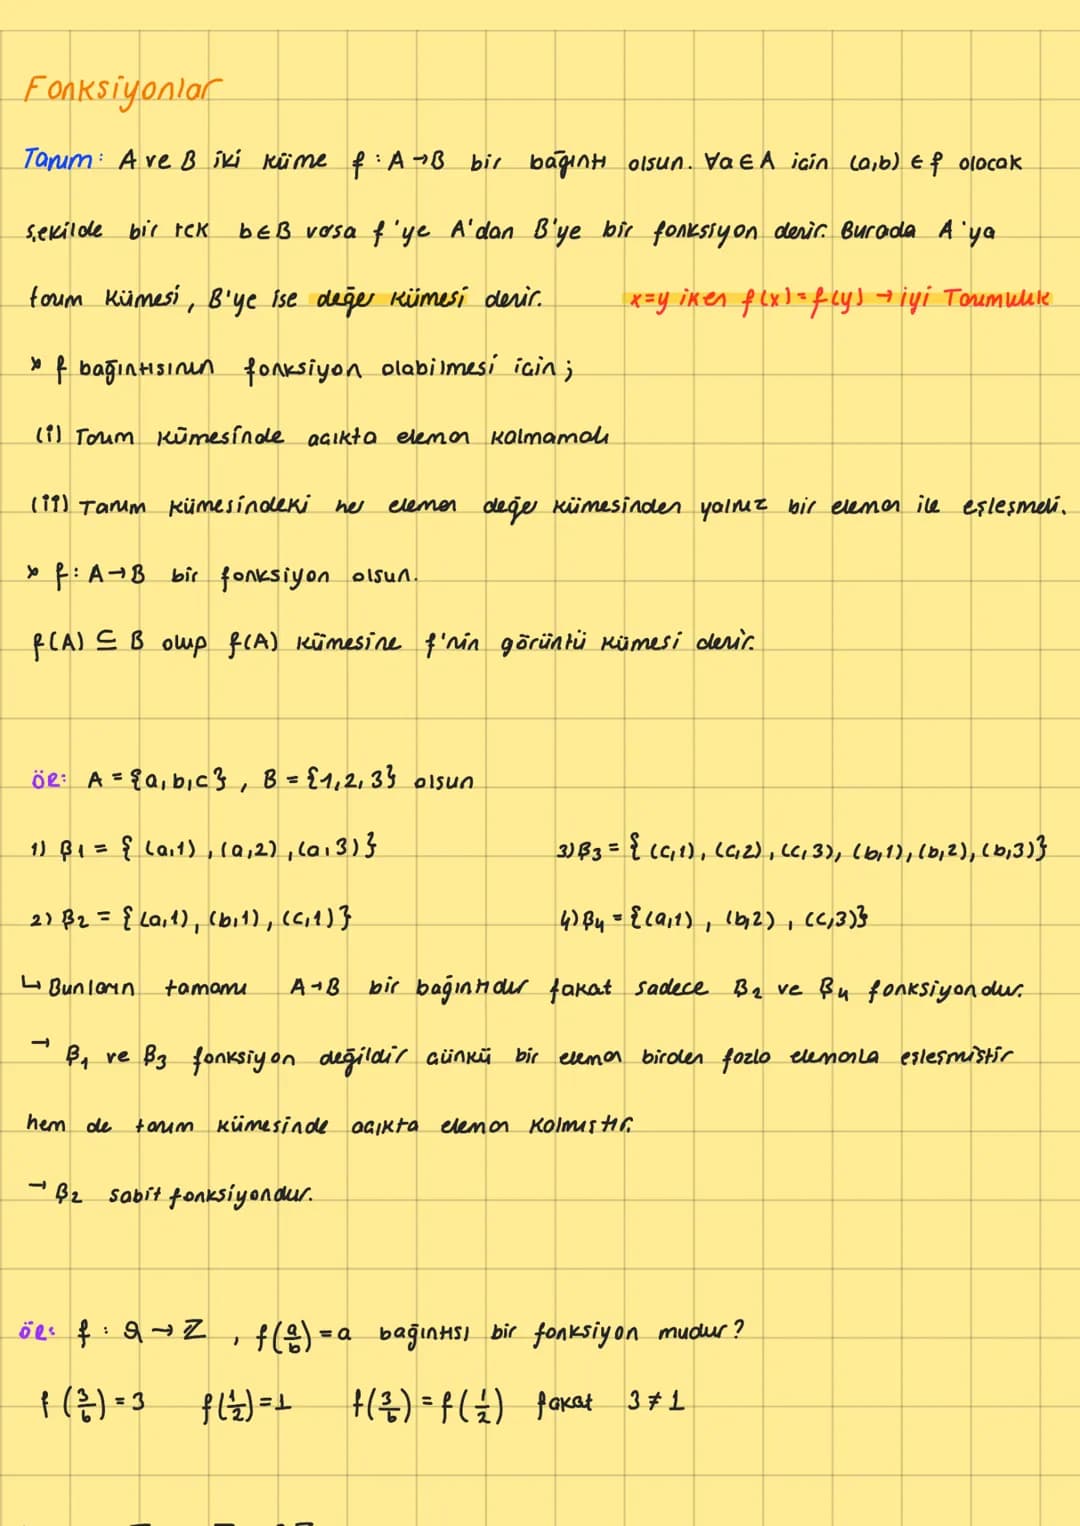 Fonksiyonlar
Tanım: A ve B iki küme f : A→B bir bağıntı olsun. ∀a∈A için (a,b) ∈ f olacak
şekilde bir tek b∈B varsa f'ye A'dan B'ye bir fonksiyon denir. Burada A'ya
tanım kümesi, B'ye ise değer kümesi denir. x=y iken f(x)=f(y) → iyi Tanımlılık
* f bağıntısının fonksiyon olabilmesi için ;
(i) Tanım kümesinde açıkta eleman kalmamalı
(ii) Tanım kümesindeki her eleman değer kümesinden yalnız bir eleman ile eşleşmeli.
* f: A→B bir fonksiyon olsun.
f(A) ⊆ B olup f(A) kümesine f'nin görüntü kümesi denir.
ÖR: A = {a,b,c} , B = {1,2,3} olsun
1) β1 = { (a,1) , (a,2) , (a,3) }
3) β3 = { (c,1), (c,2) , (c,3), (b,1), (b,2), (b,3)}
2) β2 = { (a,1), (b,1), (c,1) }
4) β4 = {(a,1) , (b,2) , (c,3)}
↳ Bunların tamamı A→B bir bağıntıdır fakat sadece β2 ve β4 fonksiyondur.
→ β1 ve β3 fonksiyon değildir çünkü bir eleman birden fazla elemanla eşleşmiştir
hem de tanım kümesinde açıkta eleman kalmıştır.
→ β2 sabit fonksiyondur.
ÖR: f : Q → Z , f(a/b) = a bağıntısı bir fonksiyon mudur?
f(3/6) = 3 f(1/2) = 1 f(3/6) = f(1/2) fakat 3 ≠ 1